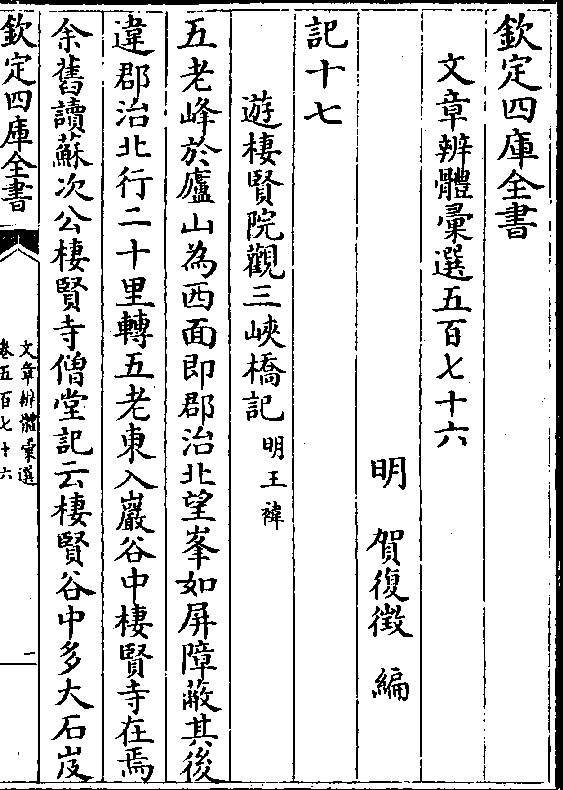 欽定四庫全書
文章辨體彙選五百七十六
明 賀復徵 編
記十七
遊棲賢院觀三峽橋記 明王褘
五老峰於廬山為西面即郡治北望峯如屏障蔽其後
違郡治北行二十里轉五老東入巖谷中棲賢寺在焉
余舊讀蘇次公棲賢寺僧堂記云棲賢谷中多大石岌
欽定四庫全書
文章辨體彙選
卷五百七十六
一